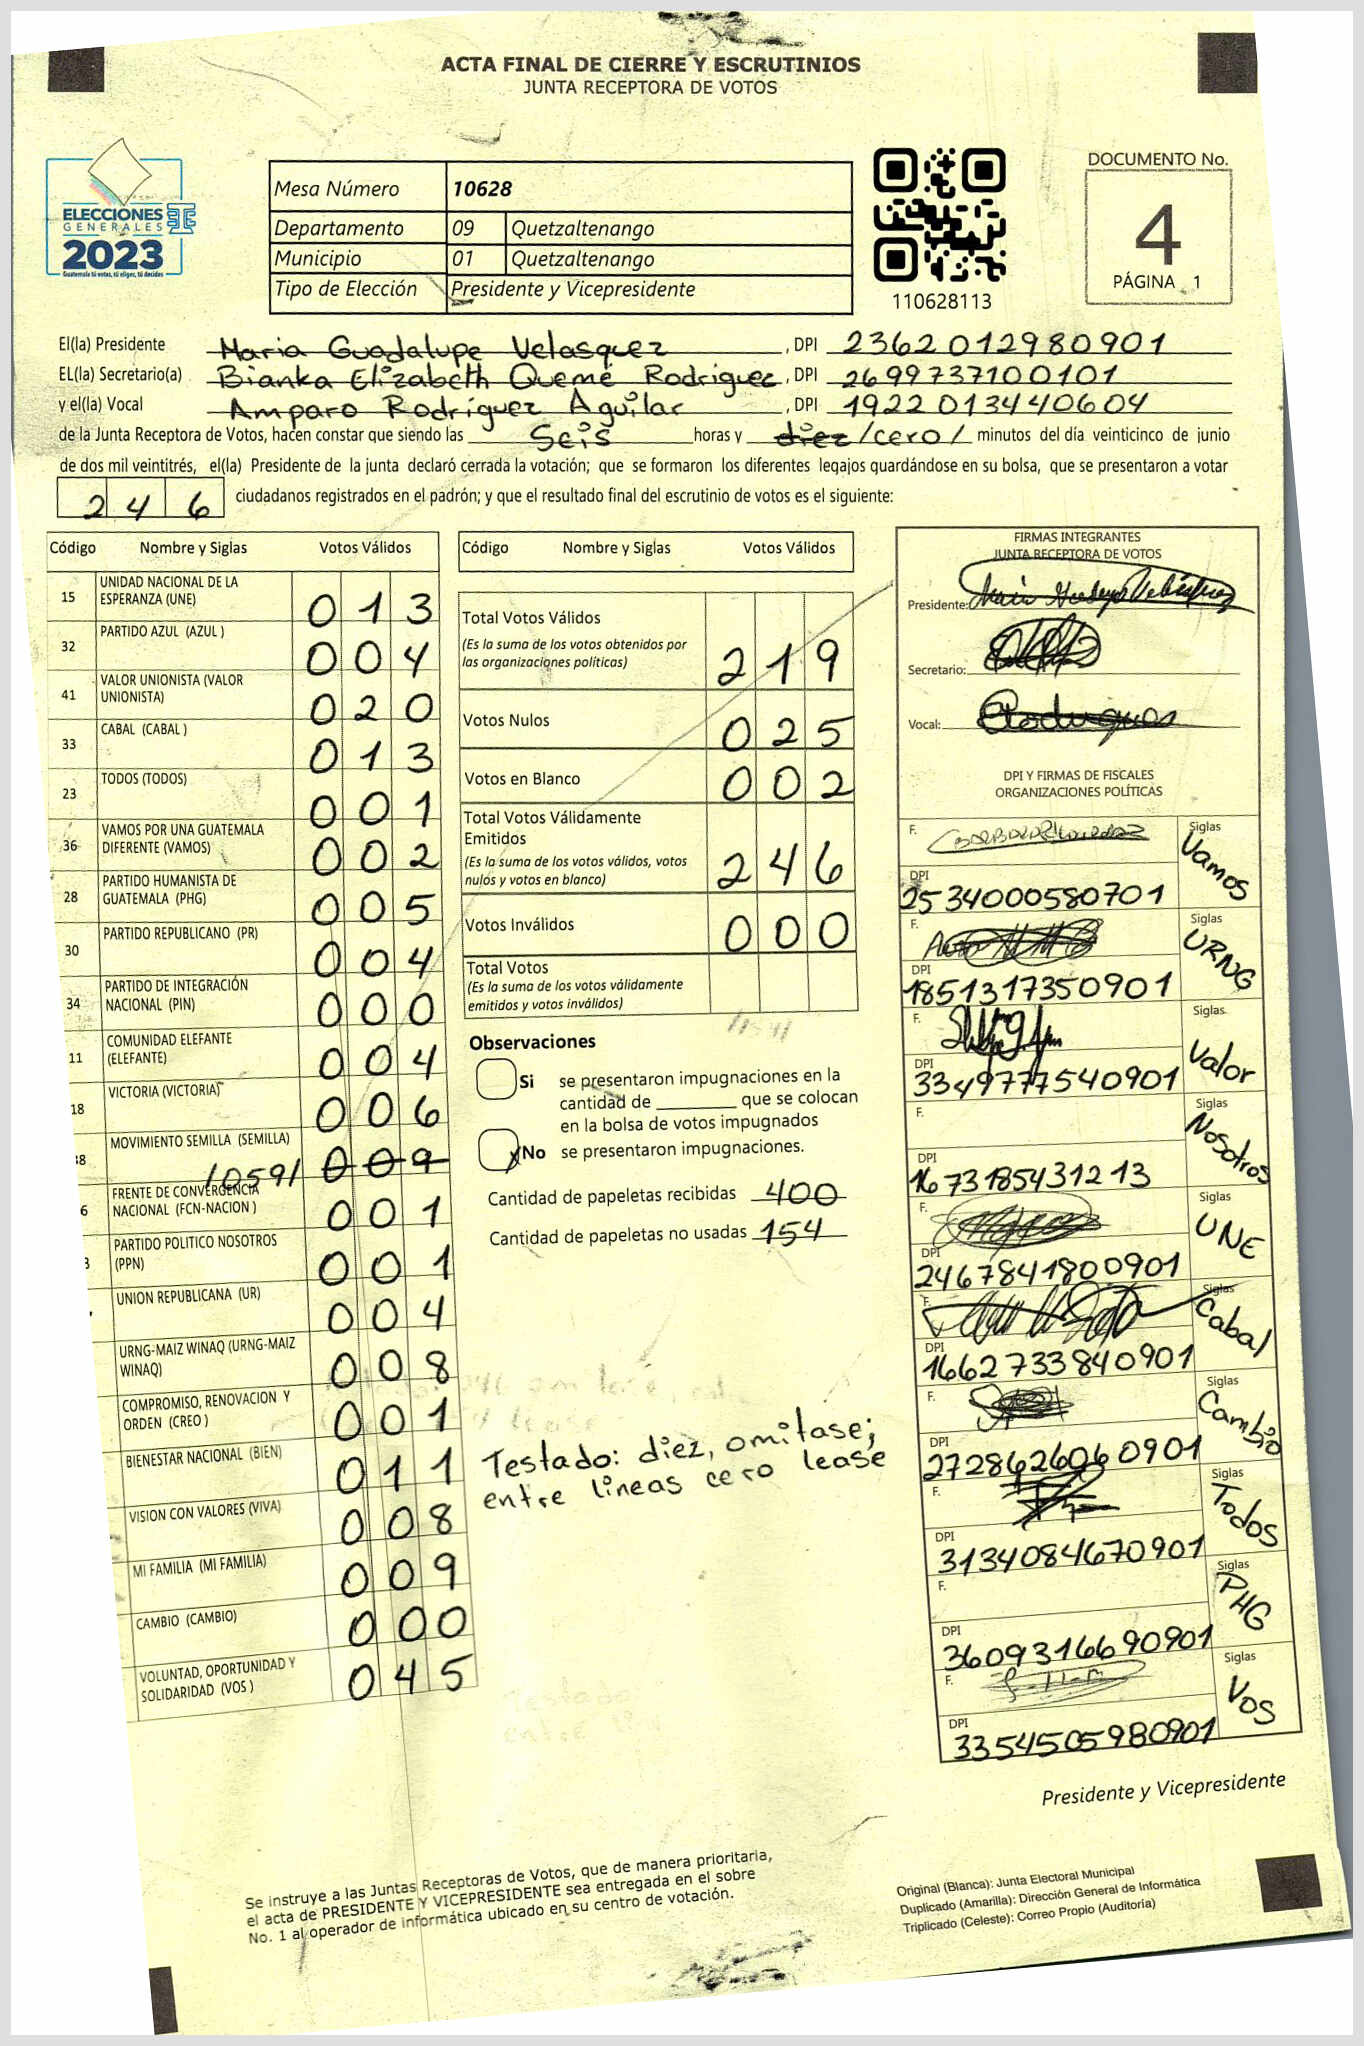 ACTA FINAL DE CIERRE Y ESCRUTINIOS
JUNTA RECEPTORA DE VOTOS
ELECCIONES
GENERALES
2023
Guatemala tú votas, tú eliges, tú decides
Mesa Número 10628
Departamento 09 Quetzaltenango
Municipio 01 Quetzaltenango
Tipo de Elección Presidente y Vicepresidente
110628113
DOCUMENTO No.
4
PÁGINA 1
El(la) Presidente Maria Guadalupe Velasquez, DPI 2362012980901
EL(la) Secretario(a) Bianka Elizabeth Quemé Rodriguez, DPI 2699737100101
y el(la) Vocal Amparo Rodríguez Aguilar, DPI 1922013440604
de la Junta Receptora de Votos, hacen constar que siendo las Seis horas y diez /cero/ minutos del día veinticinco de junio
de dos mil veintitrés, el(la) Presidente de la junta declaró cerrada la votación; que se formaron los diferentes legajos guardándose en su bolsa, que se presentaron a votar
246 ciudadanos registrados en el padrón; y que el resultado final del escrutinio de votos es el siguiente:
Código Nombre y Siglas Votos Válidos
15 UNIDAD NACIONAL DE LA ESPERANZA (UNE) 013
32 PARTIDO AZUL (AZUL ) 004
41 VALOR UNIONISTA (VALOR UNIONISTA) 020
33 CABAL (CABAL ) 013
23 TODOS (TODOS) 001
36 VAMOS POR UNA GUATEMALA DIFERENTE (VAMOS) 002
28 PARTIDO HUMANISTA DE GUATEMALA (PHG) 005
30 PARTIDO REPUBLICANO (PR) 004
34 PARTIDO DE INTEGRACIÓN NACIONAL (PIN) 000
11 COMUNIDAD ELEFANTE (ELEFANTE) 004
18 VICTORIA (VICTORIA) 006
38 MOVIMIENTO SEMILLA (SEMILLA) /059/ 009
6 FRENTE DE CONVERGENCIA NACIONAL (FCN-NACION ) 001
3 PARTIDO POLITICO NOSOTROS (PPN) 001
UNION REPUBLICANA (UR) 004
URNG-MAIZ WINAQ (URNG-MAIZ WINAQ) 008
COMPROMISO, RENOVACION Y ORDEN (CREO ) 001
BIENESTAR NACIONAL (BIEN) 011
VISION CON VALORES (VIVA) 008
MI FAMILIA (MI FAMILIA) 009
CAMBIO (CAMBIO) 000
VOLUNTAD, OPORTUNIDAD Y SOLIDARIDAD (VOS ) 045
Código Nombre y Siglas Votos Válidos
Total Votos Válidos 219
(Es la suma de los votos obtenidos por
las organizaciones políticas)
Votos Nulos 025
Votos en Blanco 002
Total Votos Válidamente
Emitidos 246
(Es la suma de los votos válidos, votos
nulos y votos en blanco)
Votos Inválidos 000
Total Votos
(Es la suma de los votos válidamente
emitidos y votos inválidos)
Observaciones
Si se presentaron impugnaciones en la
cantidad de ________ que se colocan
en la bolsa de votos impugnados
x No se presentaron impugnaciones.
Cantidad de papeletas recibidas 400
Cantidad de papeletas no usadas 154
Testado: diez, omitase;
entre líneas cero lease
FIRMAS INTEGRANTES
JUNTA RECEPTORA DE VOTOS
Presidente:
Secretario:
Vocal:
DPI Y FIRMAS DE FISCALES
ORGANIZACIONES POLÍTICAS
F. Siglas Vamos
DPI 2534000580701
F. Siglas URNG
DPI 1851317350901
F. Siglas Valor
DPI 3349777540901
F. Siglas Nosotros
DPI 1673185431213
F. Siglas UNE
DPI 2467841800901
F. Siglas Cabal
DPI 1662733840901
F. Siglas Cambio
DPI 2728626060901
F. Siglas Todos
DPI 3134084670901
F. Siglas PHG
DPI 3609316690901
F. Siglas Vos
DPI 3354505980901
Presidente y Vicepresidente
Se instruye a las Juntas Receptoras de Votos, que de manera prioritaria,
el acta de PRESIDENTE Y VICEPRESIDENTE sea entregada en el sobre
No. 1 al operador de informática ubicado en su centro de votación.
Original (Blanca): Junta Electoral Municipal
Duplicado (Amarilla): Dirección General de Informática
Triplicado (Celeste): Correo Propio (Auditoría)